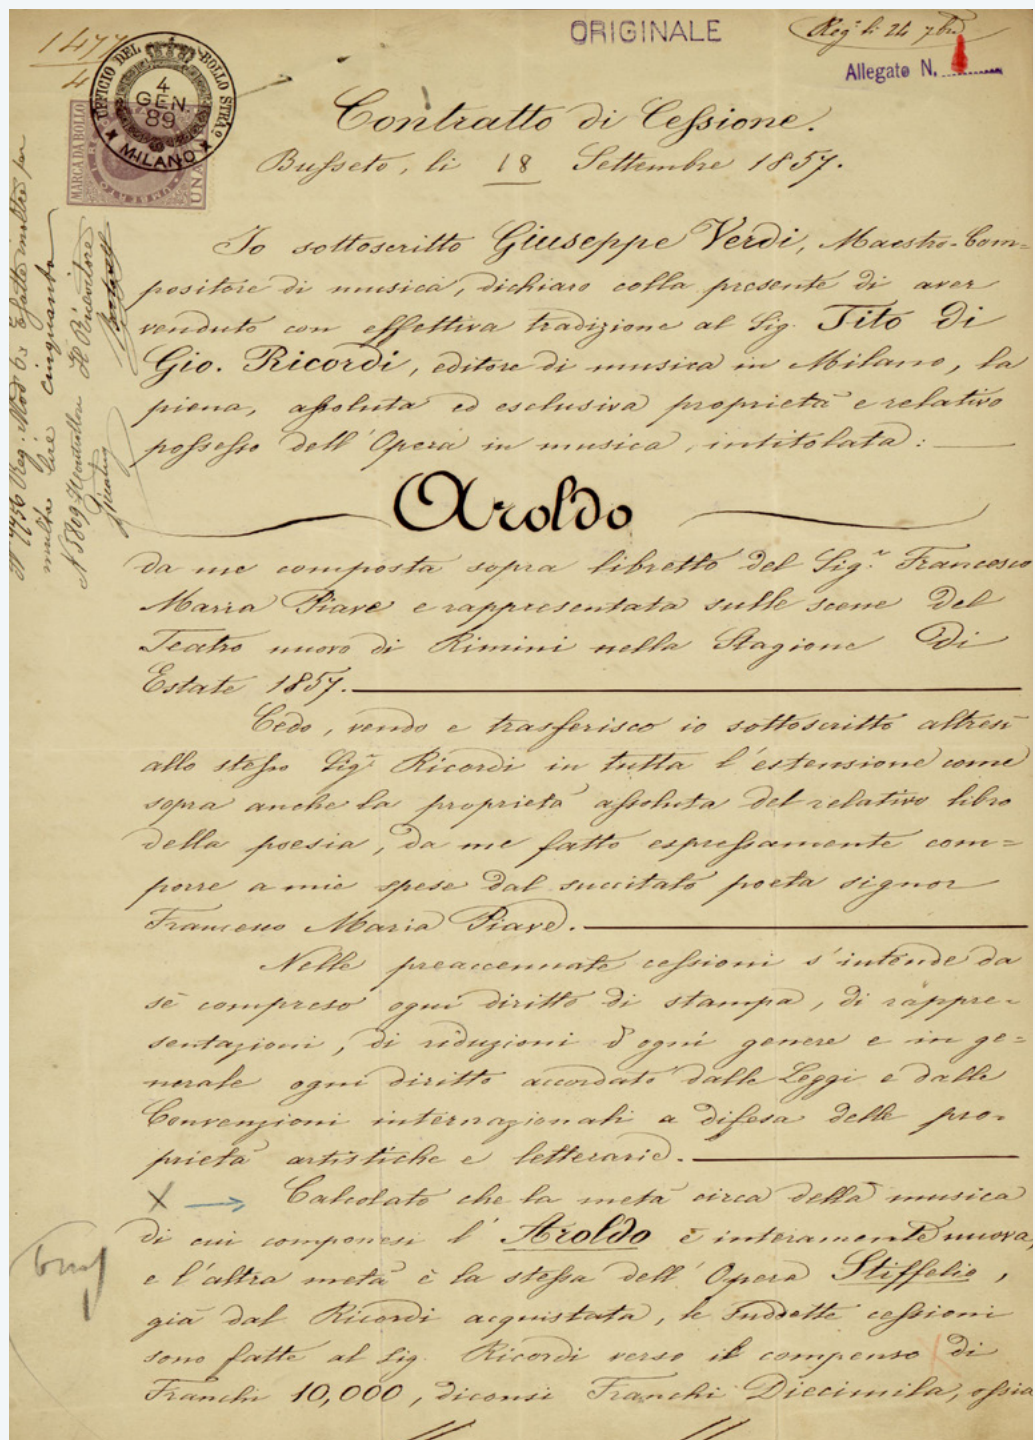 1477
4
ORIGINALE
Reg. li 24 7bre
Allegato N. 1
UFFICIO DEL BOLLO STRA.º
4
GEN.
89
MILANO
MARCA DA BOLLO
UNA
Contratto di Cessione.
Busseto, li 18 Settembre 1857.
Io sottoscritto Giuseppe Verdi, Maestro-Com=
positore di musica, dichiaro colla presente di aver
venduto con effettiva tradizione al Sig. Tito di
Gio. Ricordi, editore di musica in Milano, la
piena, assoluta ed esclusiva proprietà e relativo
possesso dell'Opera in musica, intitolata:
Aroldo
da me composta sopra libretto del Sig.r Francesco
Maria Piave e rappresentata sulle scene del
Teatro nuovo di Rimini nella Stagione di
Estate 1857.
Cedo, vendo e trasferisco io sottoscritto altresì
allo stesso Sig.r Ricordi in tutta l'estensione come
sopra anche la proprietà assoluta del relativo libro
della poesia, da me fatto espressamente com=
porre a mie spese dal succitato poeta signor
Francesco Maria Piave.
Nelle preaccennate cessioni s'intende da
sè compreso ogni diritto di stampa, di rappre=
sentazioni, di riduzioni d'ogni genere e in ge=
nerale ogni diritto accordato dalle Leggi e dalle
Convenzioni internazionali a difesa delle pro=
prietà artistiche e letterarie.
X → Calcolato che la metà circa della musica
di cui componesi l'Aroldo è interamente nuova,
e l'altra metà è la stessa dell'Opera Stiffelio,
già dal Ricordi acquistata, le suddette cessioni
sono fatte al Sig. Ricordi verso il compenso di
Franchi 10,000, diconsi Franchi Diecimila, ossia
multa lire cinquanta
Il Ricevitore